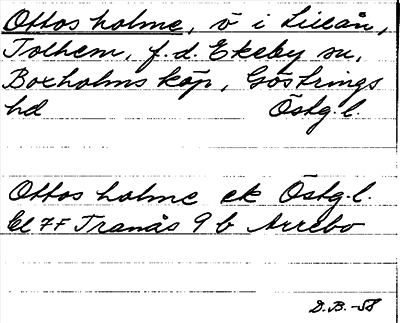 Ottos holme, ö i Lillån,
Tolhem, f.d. Ekeby sn,
Boxholms köp, Göstrings
hd Östg.l.
Ottos holme ek Östg.l.
El 7F Tranås 9 b Arrebo
D.B.-58